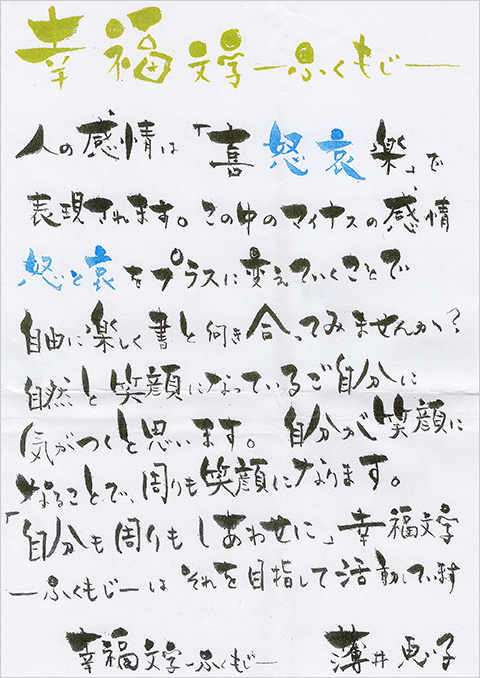 幸福文字―ふくもじ―
人の感情は「喜怒哀楽」で
表現されます。この中のマイナスの感情
怒と哀をプラスに変えていくことで
自由に楽しく書と向き合ってみませんか？
自然と笑顔になっているご自分に
気がつくと思います。自分が笑顔に
なることで、周りも笑顔になります。
「自分も周りもしあわせに」幸福文字
―ふくもじ―はそれを目指して活動しています
幸福文字―ふくもじ― 薄井恵子